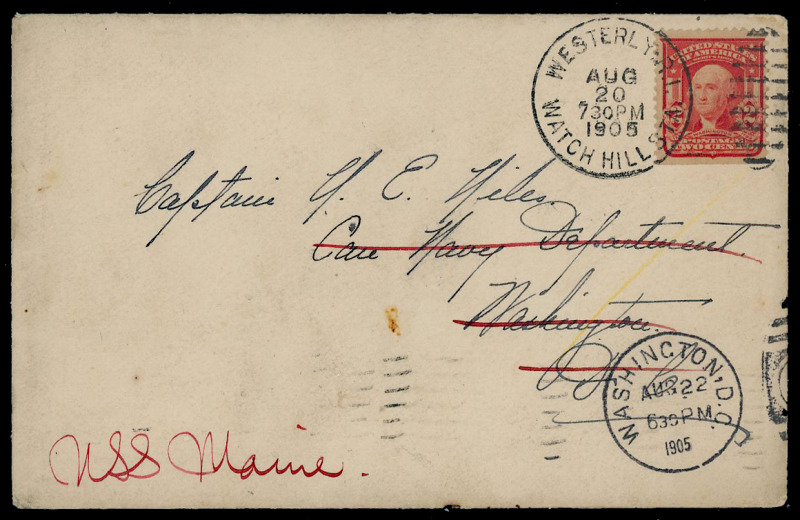 WESTERLY, R.I.
AUG
20
730PM
1905
WATCH HILL STA.
UNITED STATES
OF AMERICA
POSTAGE
TWO CENTS
Captain N. E. Niles.
Care Navy Department.
Washington.
D.C.
WASHINGTON, D.C.
AUG 22
630PM
1905
USS Maine.